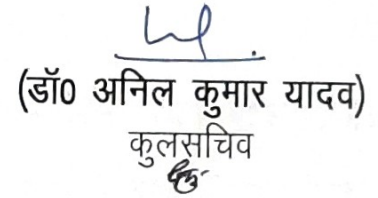 (डॉ0 अनिल कुमार यादव)
कुलसचिव